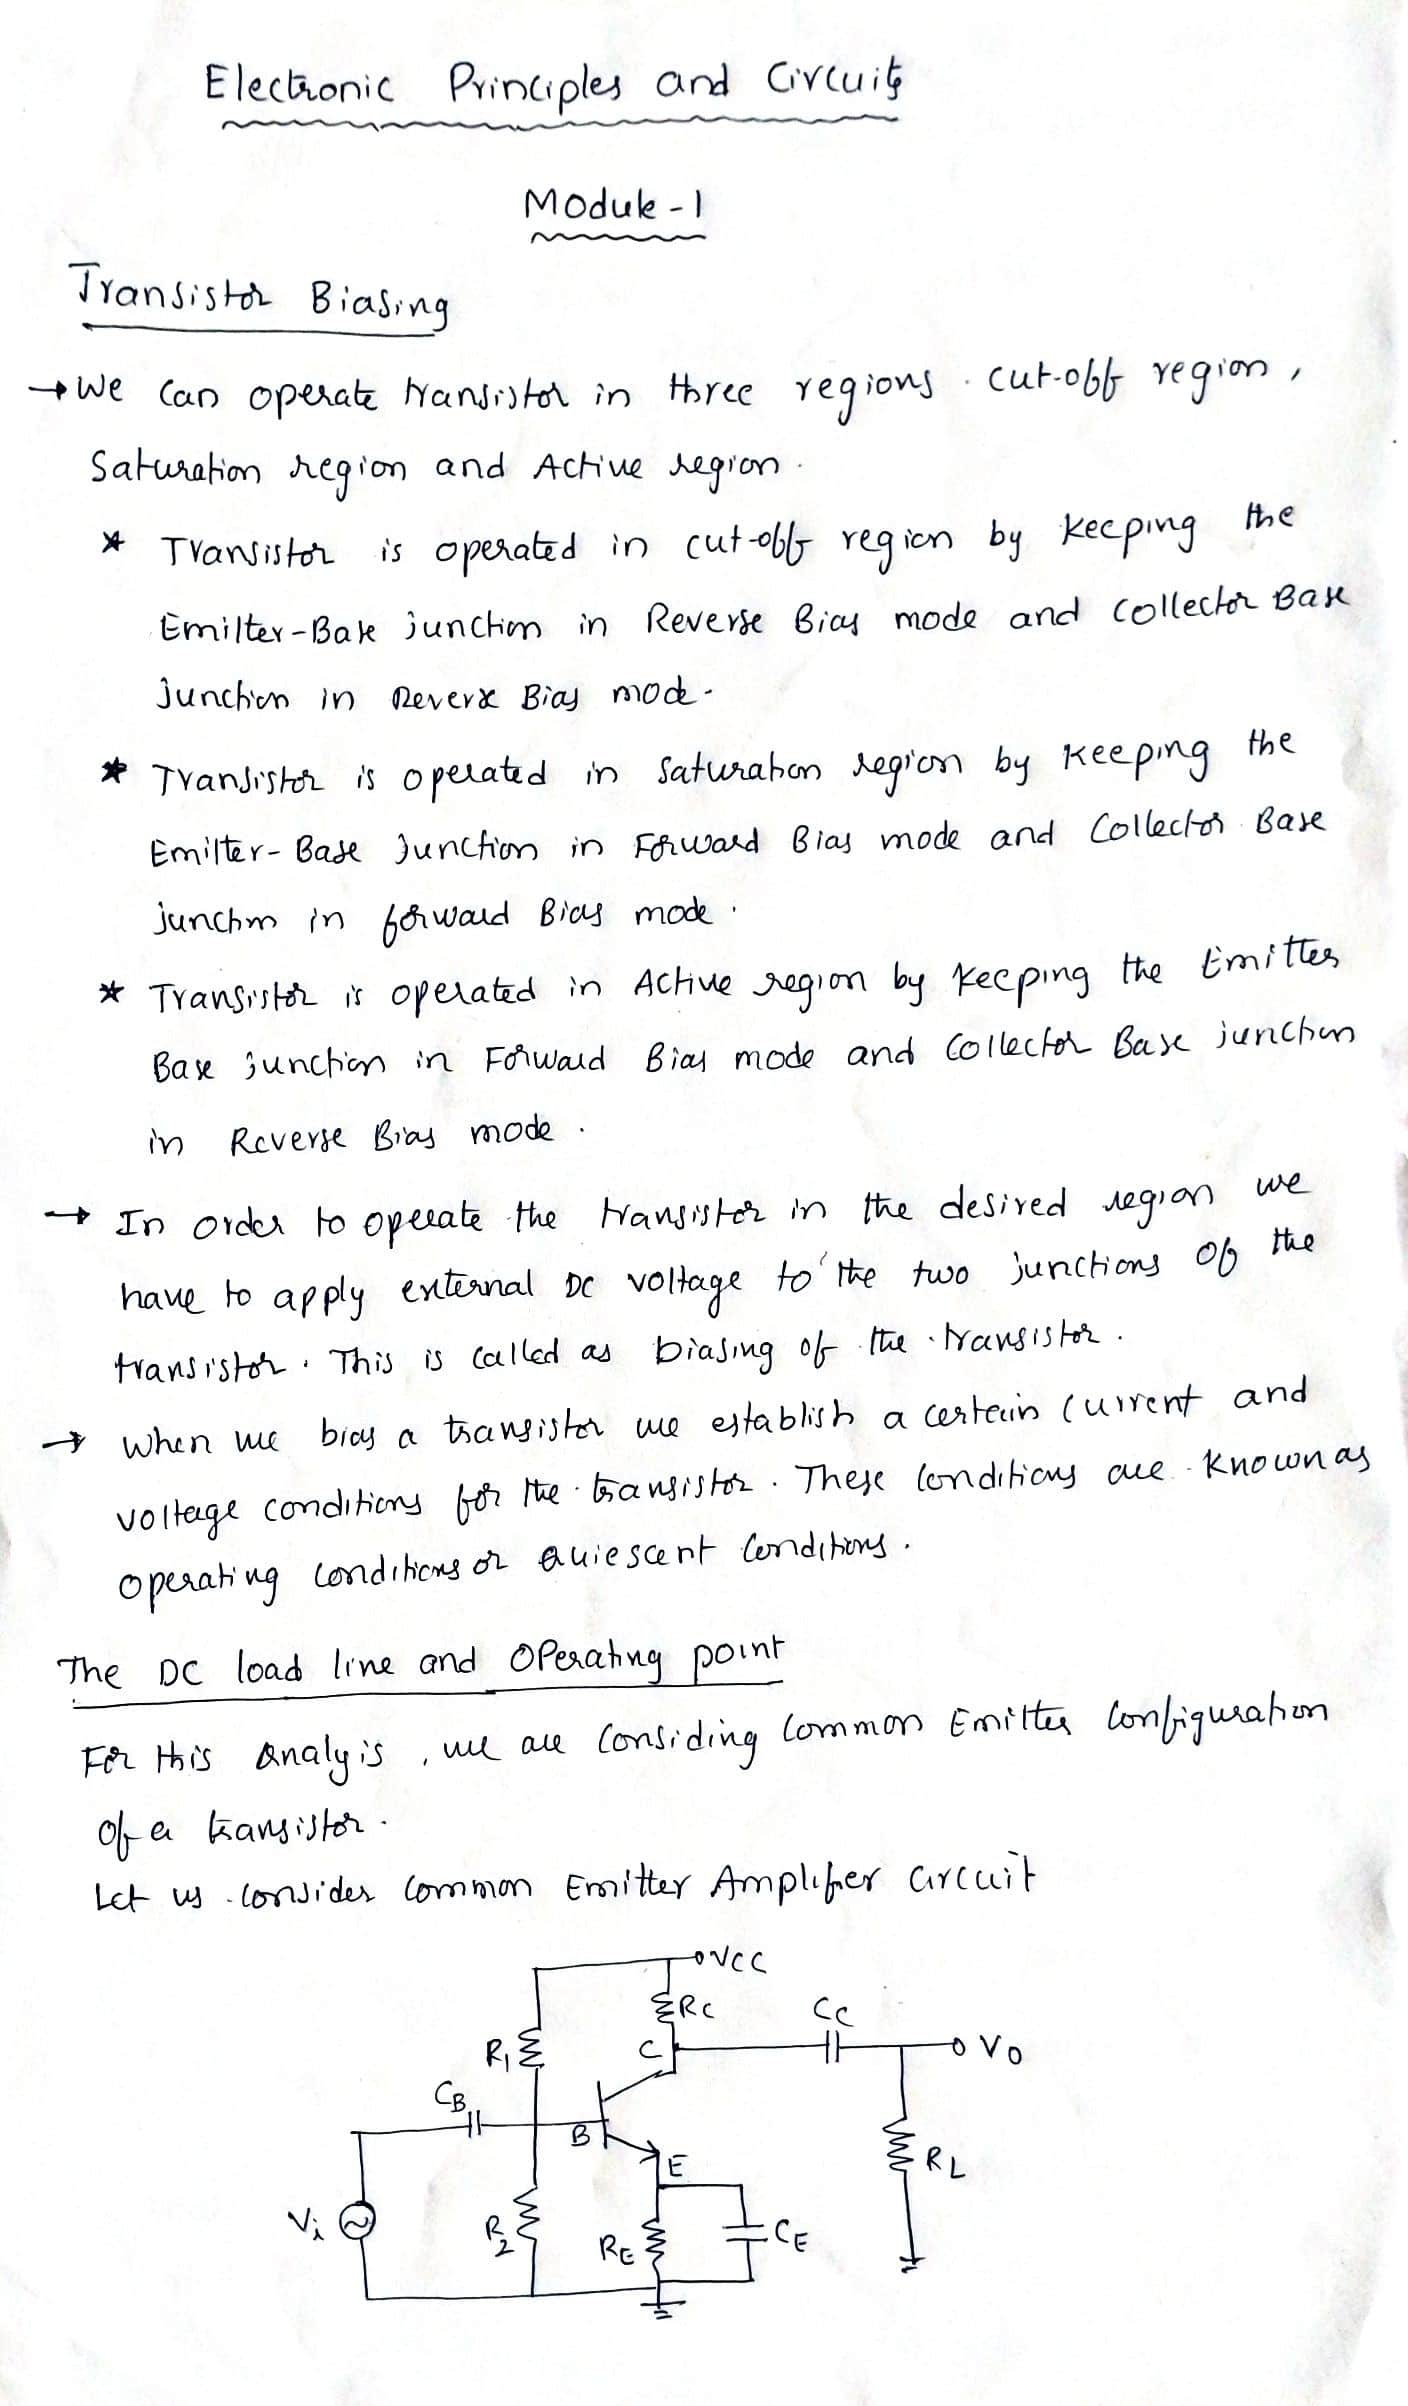 Electronic Principles and Circuits
Module - 1
Transistor Biasing
→ We can operate transistor in three regions. cut-off region,
Saturation region and Active region.
* Transistor is operated in cut-off region by keeping the
Emitter-Base junction in Reverse Bias mode and collector Base
junction in Reverse Bias mode.
* Transistor is operated in saturation region by keeping the
Emitter-Base Junction in Forward Bias mode and Collector Base
junction in forward Bias mode.
* Transistor is operated in Active region by keeping the Emitter
Base junction in Forward Bias mode and Collector Base junction
in Reverse Bias mode.
→ In order to operate the transistor in the desired region we
have to apply external DC voltage to the two junctions of the
transistor. This is called as biasing of the transistor.
→ When we bias a transistor we establish a certain current and
voltage conditions for the transistor. These conditions are known as
operating conditions or quiescent conditions.
The DC load line and Operating point
For this Analyis, we are Considing Common Emitter Configuration
of a transistor.
Let us consider Common Emitter Amplifier circuit
VCC
RC
CC
R1
C
VO
CB
B
E
RL
Vi
R2
RE
CE